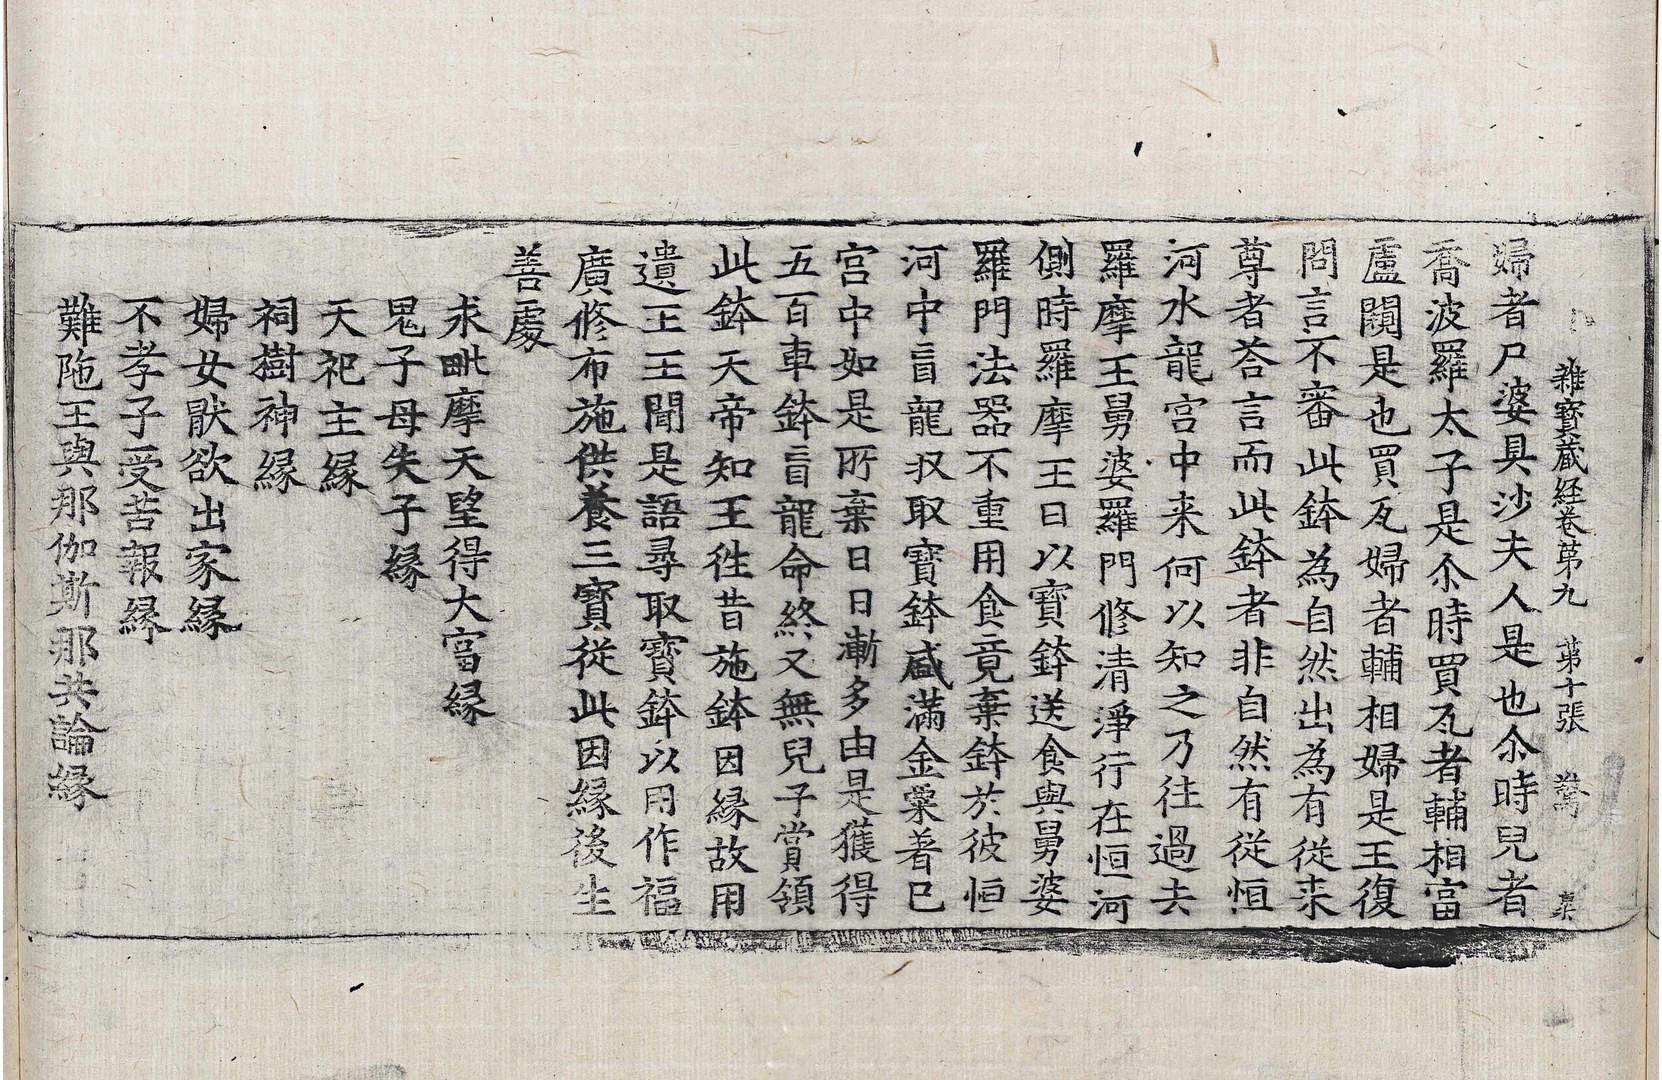 雜寶藏経卷苐九 苐十張
婦者尸婆具沙夫人是也尒時兒者
喬波羅太子是尒時買瓦者輔相富
盧闚是也買瓦婦者輔相婦是王復
問言不審此鉢為自然出為有従来
尊者荅言而此鉢者非自然有従恒
河水龍宫中来何以知之乃往過去
羅摩王舅婆羅門修清淨行在恒河
側時羅摩王日以寶鉢送食與舅婆
羅門法器不重用食竟棄鉢於彼恒
河中盲龍収取寶鉢盛滿金粟著已
宫中如是所棄日日漸多由是獲得
五百車鉢盲龍命終又無兒子賞領
此鉢天帝知王徃昔施鉢因縁故用
遺王王聞是語尋取寶鉢以用作福
廣修布施供養三寶従此因縁後生
善處
求毗摩天望得大富縁
鬼子母失子縁
天祀主縁
祠樹神縁
婦女猒欲出家縁
不孝子受苦報縁
難陁王與那伽斯那共論縁